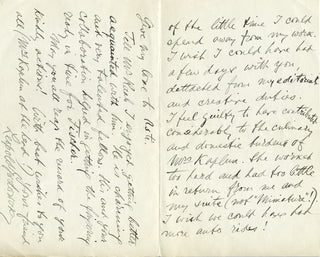 of the little time I could
spend away from my work.
I wish I could have had
a few days with you,
dettached from my editorial
and creative duties.
I feel guilty to have contributed
considerably to the culinary
and domestic burdens of
Mrs Kaplan. She worked
too hard and had too little
in return from me and
my suite (not "Miniature"!)
I wish we could have had
more auto rides!
Give my love to
Tell Mrs I enjoyed getting better
acquainted with him. He is a charming
and very talented fellow. His and your
collaboration helped in getting the fingering
ready in time for Fischer.
May you all reap the reward of your
kindly actions. With best wishes to you
all (Mrs Kaplan at the head) Yours friend
Leopold Godowsky